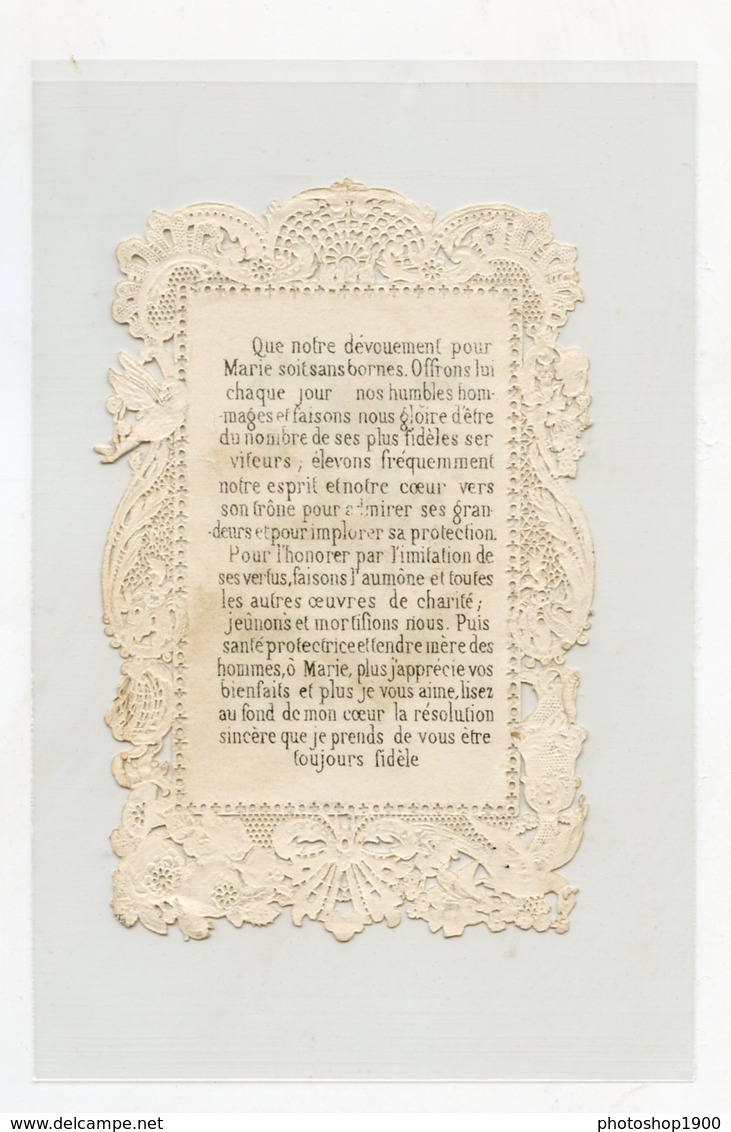 Que notre dévouement pour
Marie soit sans bornes. Offrons lui
chaque jour nos humbles hom-
-mages et faisons nous gloire d'être
du nombre de ses plus fidèles ser
viteurs ; élevons fréquemment
notre esprit et notre cœur vers
son trône pour admirer ses gran-
-deurs et pour implorer sa protection.
Pour l'honorer par l'imitation de
ses vertus, faisons l'aumône et toutes
les autres œuvres de charité ;
jeûnons et mortifions nous. Puis
santé protectrice et tendre mère des
hommes, ô Marie, plus j'apprécie vos
bienfaits et plus je vous aime, lisez
au fond de mon cœur la résolution
sincère que je prends de vous être
toujours fidèle
www.delcampe.net photoshop1900